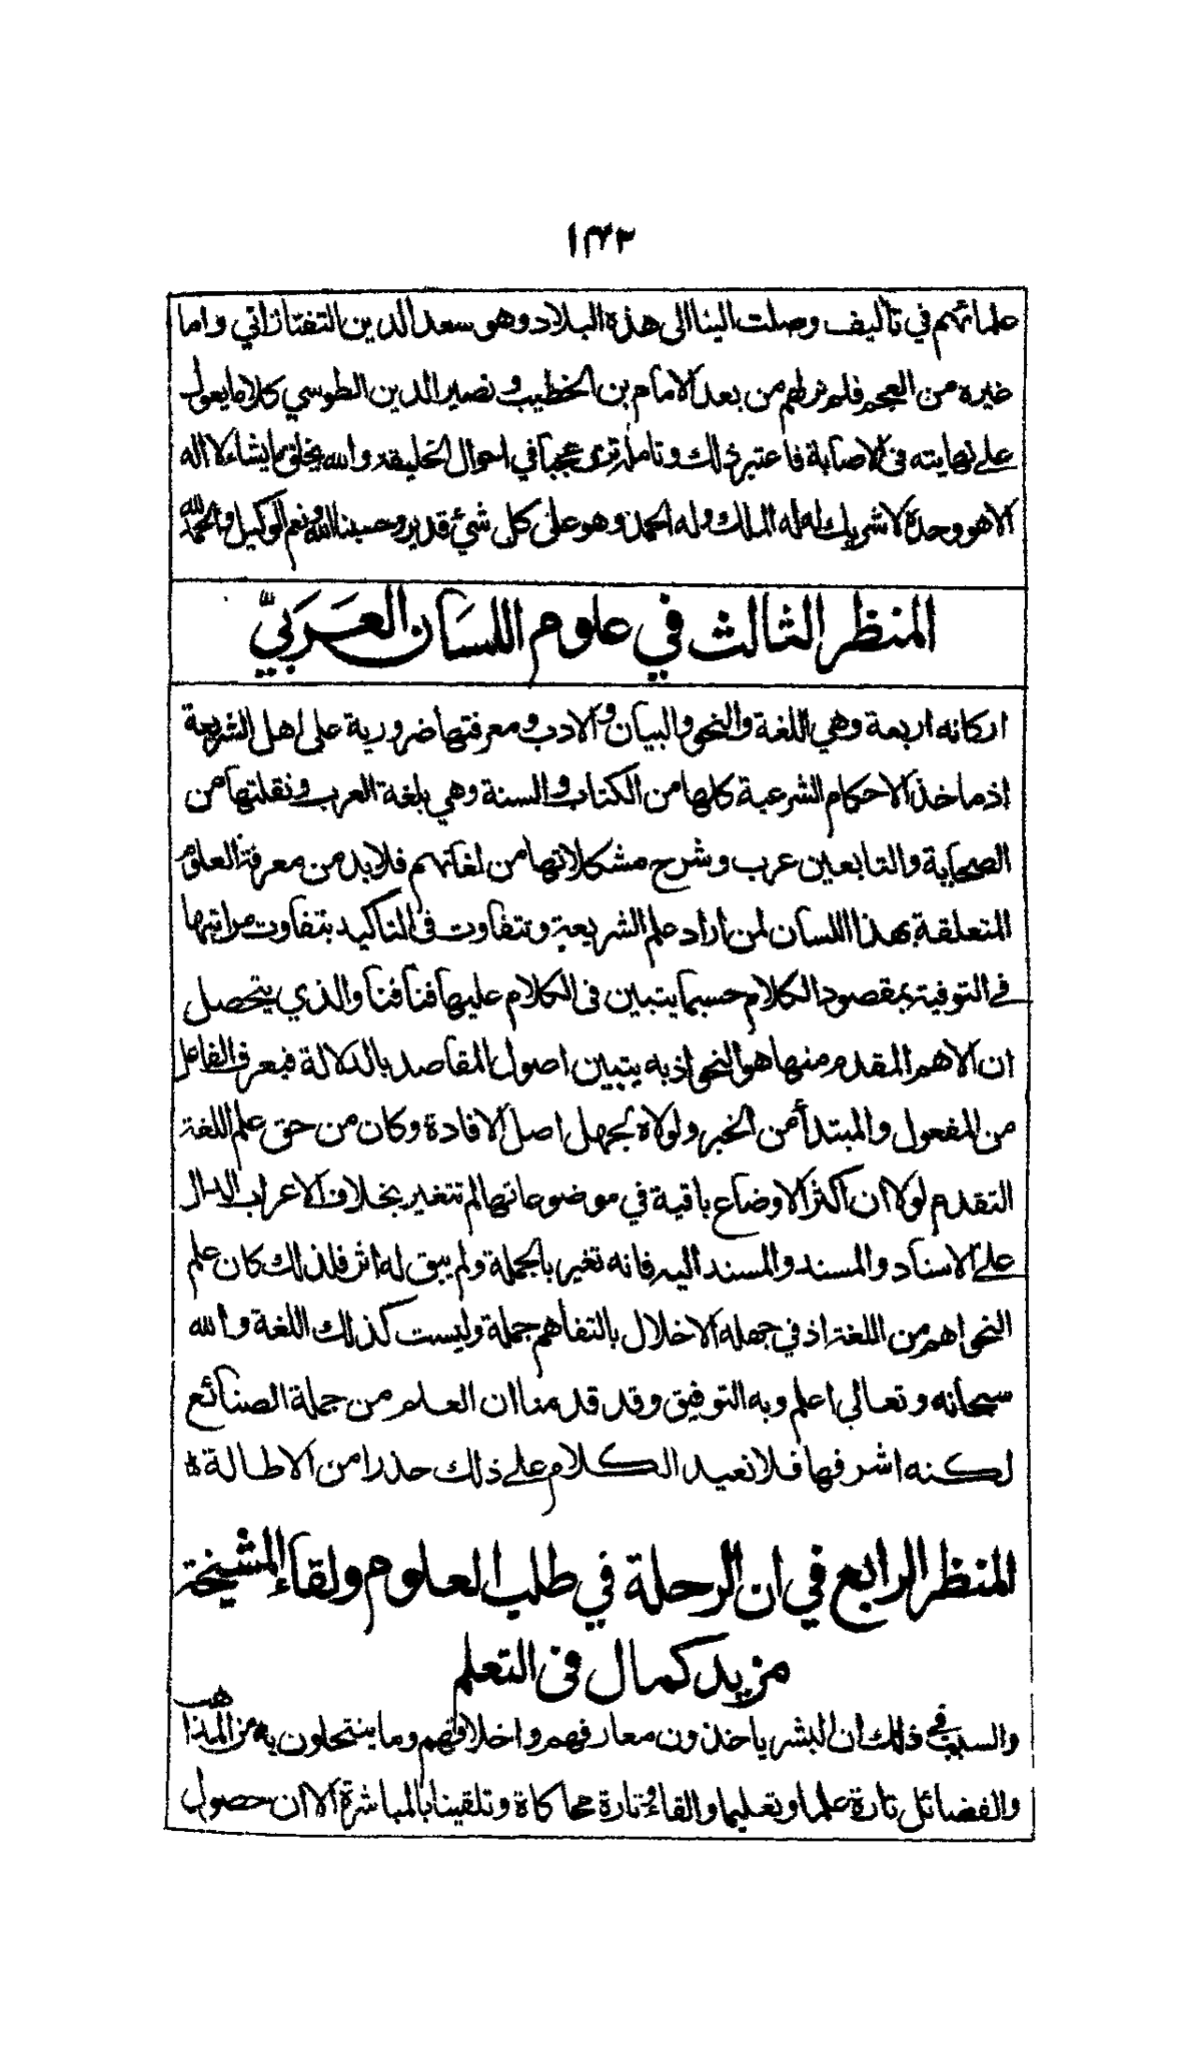 ١٤٣
علمائهم في تآليف وصلت الينا الى هذه البلاد وهو سعد الدين التفتازاني واما
غيره من العجم فلم نر لهم من بعد الامام بن الخطيب ونصير الدين الطوسي كلاما يعول
على نهايته في الاصابة فاعتبر ذلك وتامله ترى عجبا في احوال الخليقة والله يخلق ما يشاء لا اله
الا هو وحده لا شريك له له الملك وله الحمد وهو على كل شئ قدير وحسبنا الله ونعم الوكيل والحمد لله
المنظر الثالث في علوم اللسان العربي
اركانه اربعة وهي اللغة والنحو والبيان والادب ومعرفتها ضرورية على اهل الشريعة
اذ ماخذ الاحكام الشرعية كلها من الكتاب والسنة وهي بلغة العرب ونقلتها من
الصحابة والتابعين عرب وشرح مشكلاتها من لغاتهم فلا بد من معرفة العلوم
المتعلقة بهذا اللسان لمن اراد علم الشريعة وتتفاوت في التاكيد بتفاوت مراتبها
في التوفية بمقصود الكلام حسبما يتبين في الكلام عليها فنا فنا والذي يتحصل
ان الاهم المقدم منها هو النحو اذ به يتبين اصول المقاصد بالدلالة فيعرف الفاعل
من المفعول والمبتدأ من الخبر ولولاه لجهل اصل الافادة وكان من حق علم اللغة
التقدم لولا ان اكثر الاوضاع باقية في موضوعاتها لم تتغير بخلاف الاعراب الدال
على الاسناد والمسند والمسند اليه فانه تغير بالجملة ولم يبق له اثر فلذلك كان علم
النحو اهم من اللغة اذ في جهله الاخلال بالتفاهم جملة وليست كذلك اللغة والله
سبحانه وتعالى اعلم وبه التوفيق وقد قدمنا ان العلم من جملة الصنائع
لكنه اشرفها فلا نعيد الكلام على ذلك حذرا من الاطالة ة
المنظر الرابع في ان الرحلة في طلب العلوم ولقاء المشيخة
مزيد كمال في التعلم
والسبب في ذلك ان البشر ياخذون معارفهم واخلاقهم وما ينتحلون به من المذاهب
والفضائل تارة علما وتعليما والقاء وتارة محاكاة وتلقينا بالمباشرة الا ان حصول